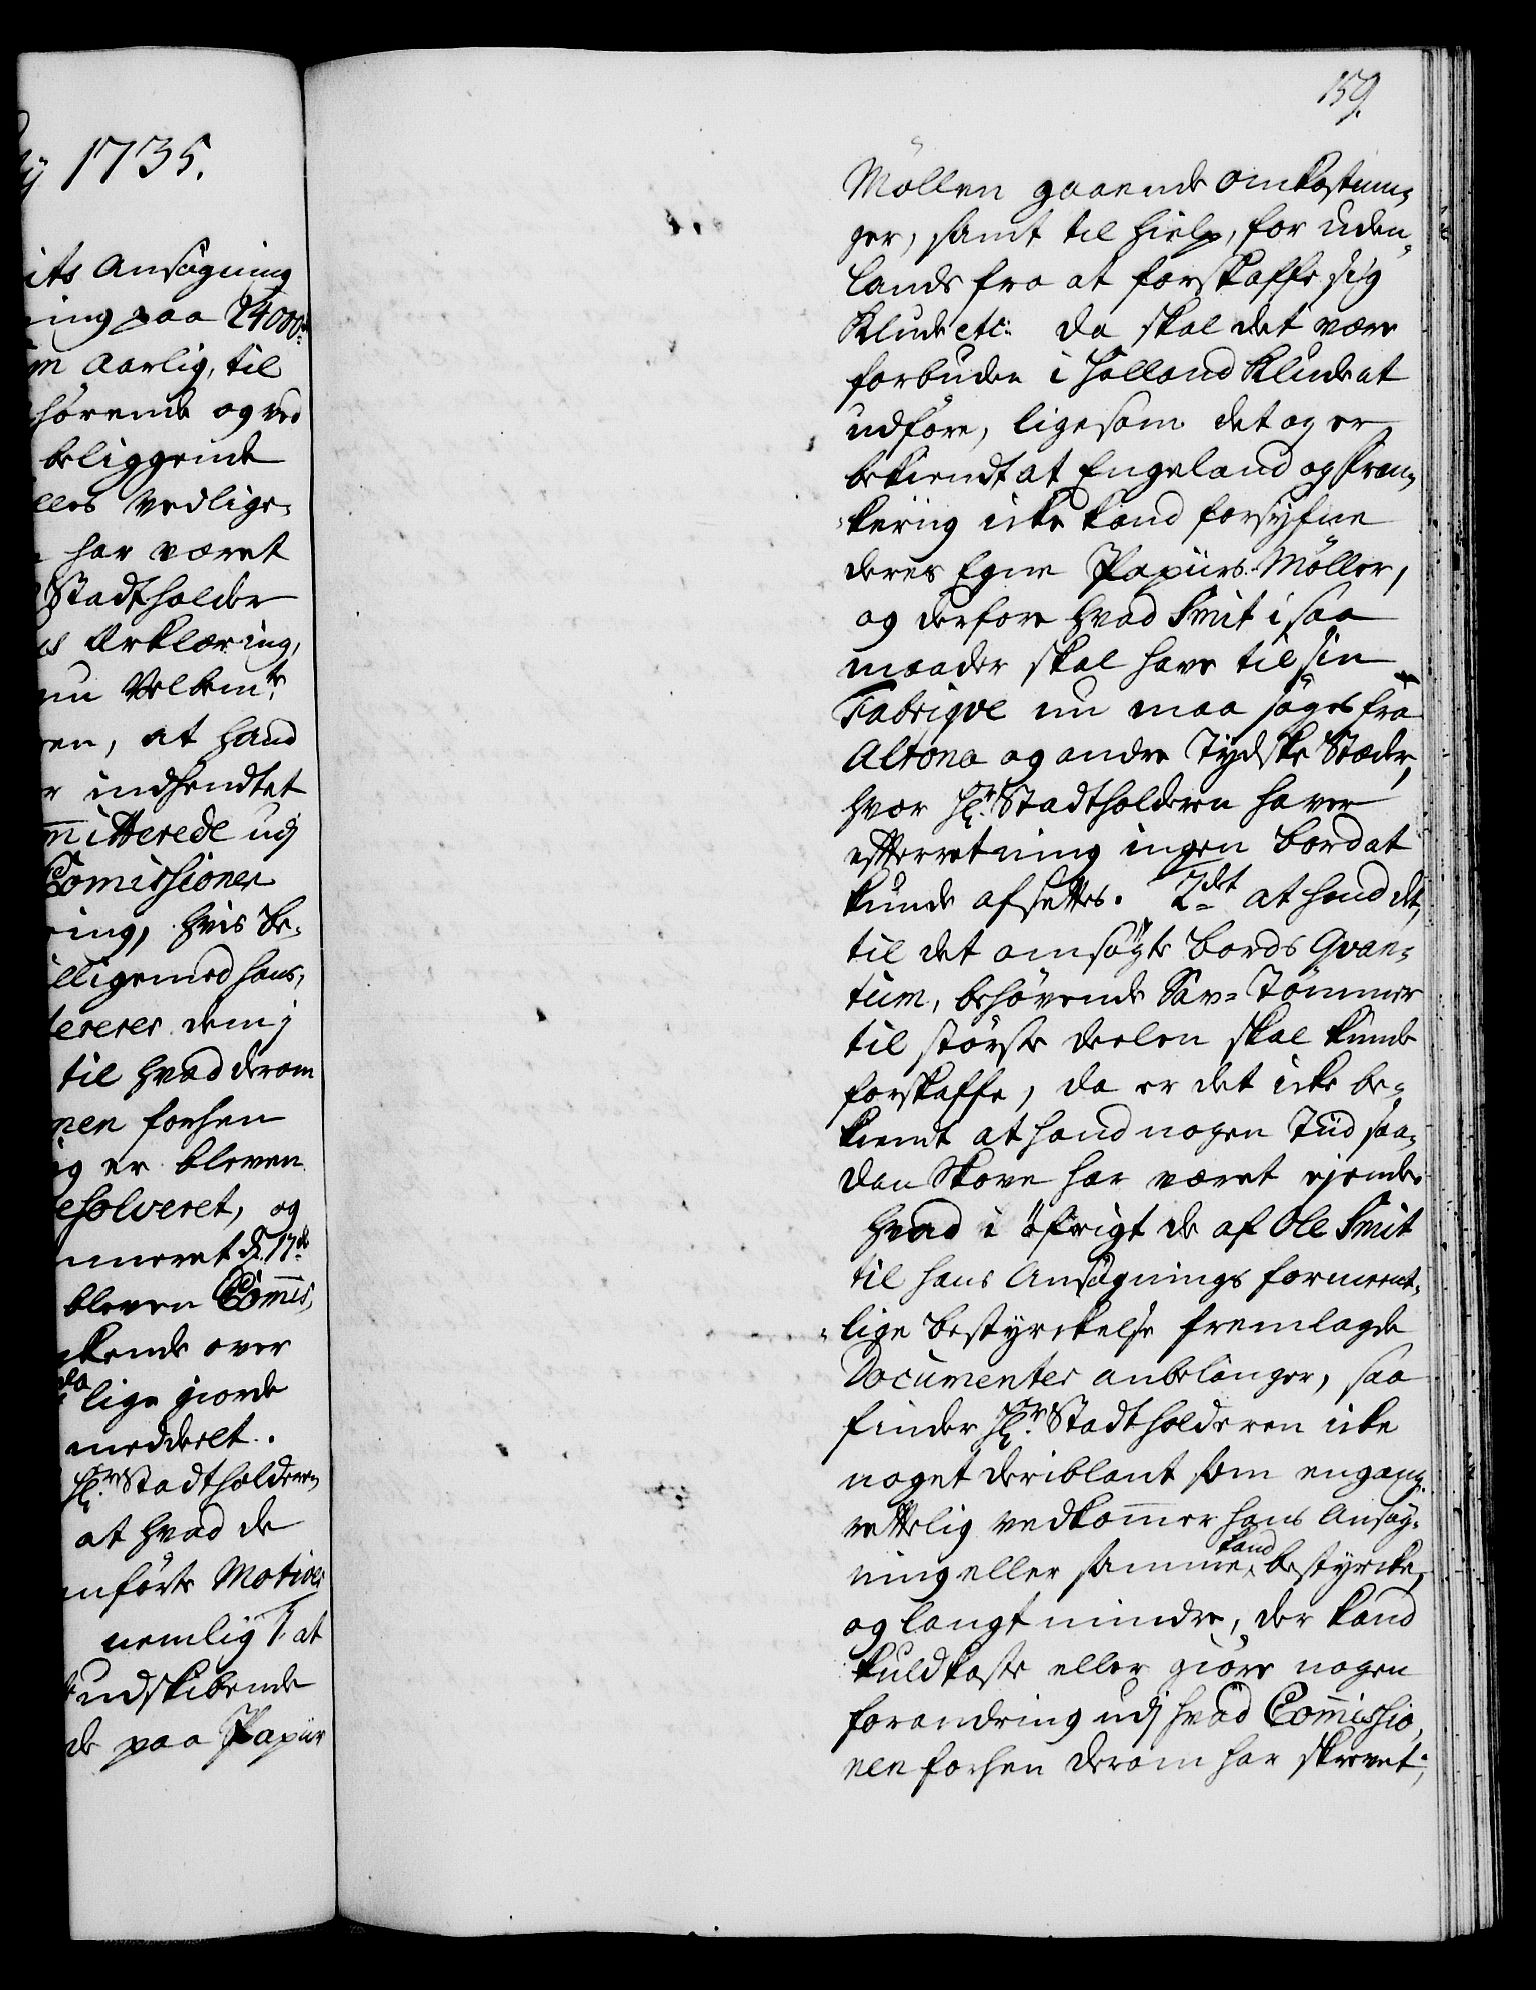 1735.
its Ansøgning
ing paa 24000
Aarlig, til
hörende og ved
beliggende
Vedlige-
har været
Stadtholder
Erklæring,
nu Velbem.te
en, at hand
indhendtet
mitterede udj
Comissionen
ing, hvis be-
lligemed hans,
tererer dem j
til hvad derom
nen forhen
ig er bleven
esolveret, og
d. 17de
bleven Commis,
kende over
lige giorde
meddeelt.
Hr. Stadtholderen
at hvad de
nførte Motiver
nemlig 1. at
udskibende
de paa Papiir
159.
Møllen gaaende Omkostnin-
ger, samt til hielp, for uden-
lands fra at forskaffe sig
Klude etc: da skal det være
forbuden i Holland Klude at
udføre, ligesom det og er
bekiendt at Engeland og Fran-
kerig icke kand forsyfne
deres Egne Papiirs-Møller,
og derfore hvad Smit i saa
maader skal have til sin
Fabrique nu maa søges fra
Altona og andre Tydske Stæder,
hvor Hr. Stadtholderen haver
efterretning ingen Bord at
kunde afsettes. 2det at hand det,
til det omsøgte Bords Qvan-
tum, behøvende Sav-Tømmer
til største deelen skal kunde
forskaffe, da er det icke be-
kiendt at hand nogen Tiid saa-
dan Skove har været ejende
Hvad i øfrigt de af Ole Smit
til hans Ansøgnings forment-
lige bestyrckelse fremlagde
Documenter anbelanger, saa
finder Hr. Stadtholderen icke
noget deriblant som engang
rettelig vedkommer hans Ansøg-
ning eller samme kand bestyrcke,
og langt mindre, der kand
kuldkaste eller giøre nogen
forandring udj hvad Commissio-
nen forhen derom har skrevet;